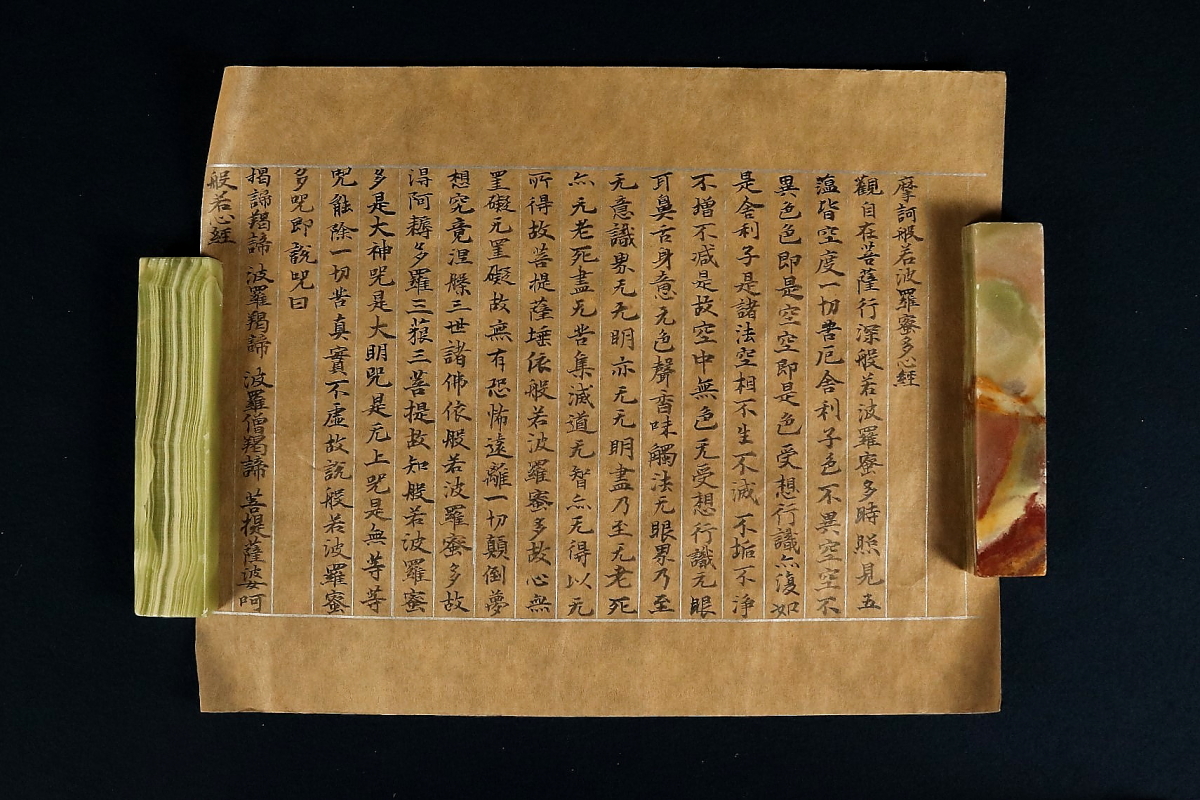 摩訶般若波羅蜜多心經
觀自在菩薩行深般若波羅蜜多時照見五
蘊皆空度一切苦厄舍利子色不異空空不
異色色即是空空即是色受想行識亦復如
是舍利子是諸法空相不生不滅不垢不淨
不增不減是故空中無色无受想行識无眼
耳鼻舌身意无色聲香味觸法无眼界乃至
无意識界无无明亦无无明盡乃至无老死
亦无老死盡无苦集滅道无智亦无得以无
所得故菩提薩埵依般若波羅蜜多故心無
罣礙无罣礙故無有恐怖遠離一切顛倒夢
想究竟涅槃三世諸佛依般若波羅蜜多故
得阿耨多羅三藐三菩提故知般若波羅蜜
多是大神咒是大明咒是无上咒是無等等
咒能除一切苦真實不虛故說般若波羅蜜
多咒即說咒曰
揭諦羯諦 波羅羯諦 波羅僧羯諦 菩提薩婆呵
般若心經